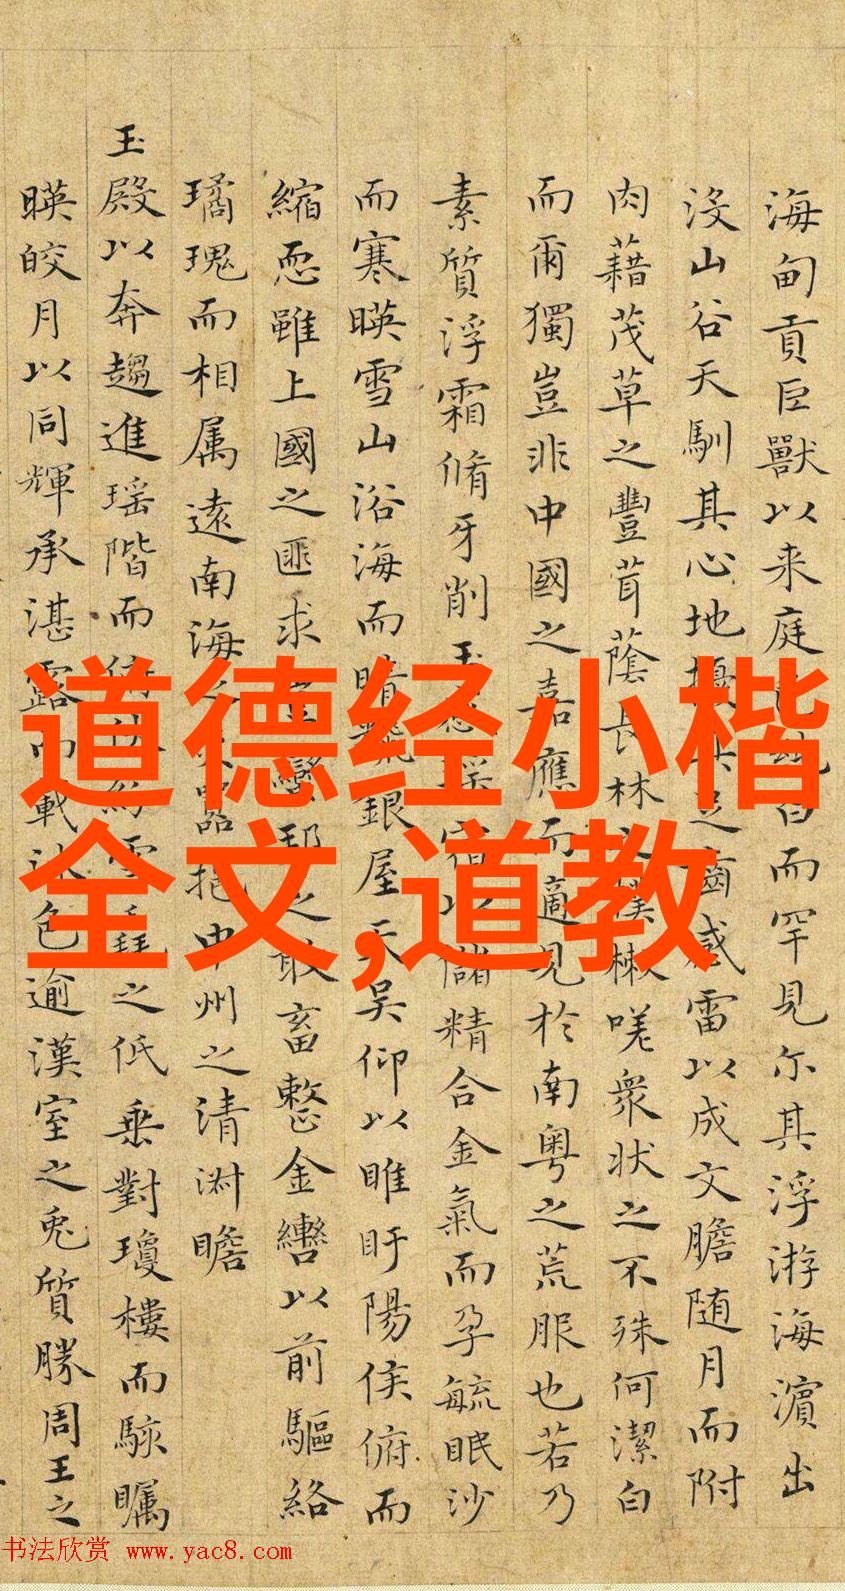 海甸貢巨獸以来庭色純白而罕見尔其浮游海濵出
沒山谷天馴其心地擾其足齒感雷以成文膽随月而附
肉藉茂草之豐茸蔭長林之樸樕嗟衆状之不殊何潔白
而爾獨豈非中國之嘉應而適見於南粤之荒服也若乃
素質浮霜脩牙削玉
儲精合金氣而孕毓眠沙
而寒暎雪山浴海而晴
銀屋天吴仰以睢盱陽侯俯而
縮恧雖上國之匪求
蠻邦之敢畜整金轡以前驅絡
璚瑰而相属遠南海之
抱中州之清淑瞻
玉殿以奔趨進瑶階而
之低垂對瓊樓而駭矚
暎皎月以同輝承湛露而載沐色逾漢室之兎質勝周王之
道德经小楷
全文,道教
书法欣赏 www.yac8.com